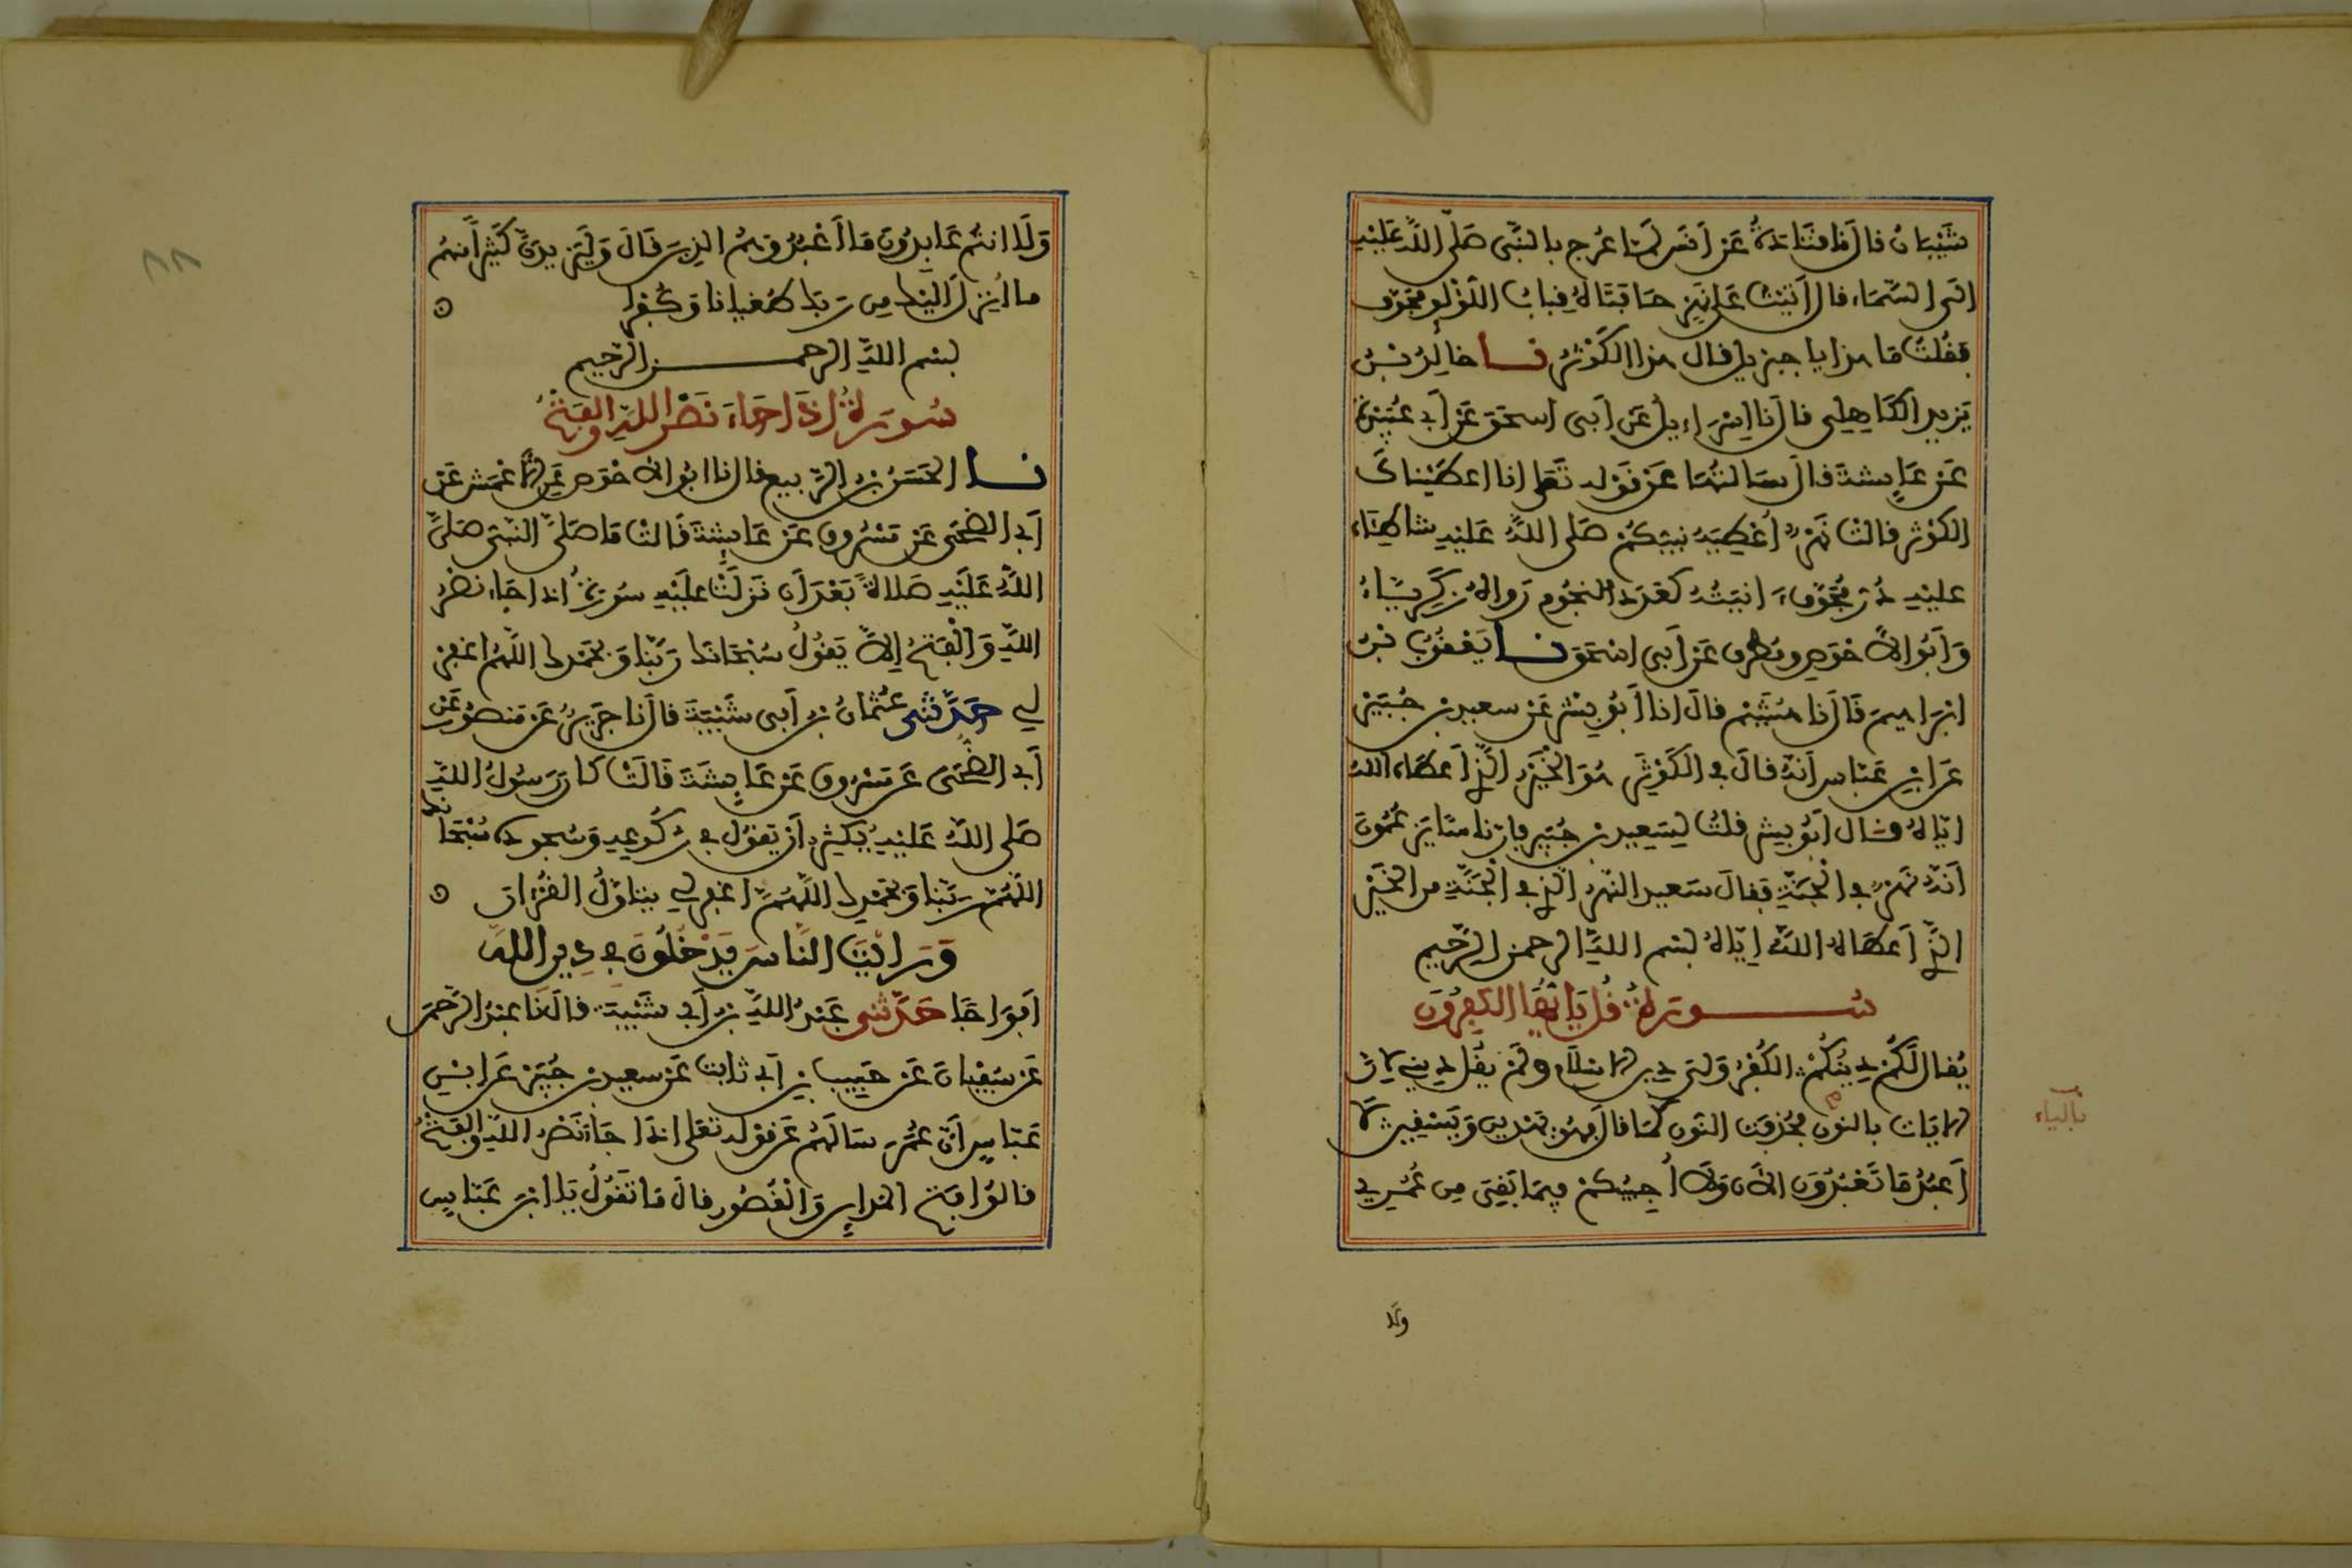 شَيْبَانُ قال نا قتَادَةُ عَن اَنَس لَمَّا عُرج بالنَّبى صَلَّى اللَّه عَلَيْهِ
الَى السَّمَاء قال اَتَيْتُ عَلى نَهَرٍ حَافتَاهُ قِبابُ اللُّؤْلُوِ مُجَوَّف
فَقُلْتُ مَا هٰذا يا جبْريل قال هذا الكَوْثَرُ نـــا خالدُ بْنُ
يَزِيد الكَاهِلِي قال نا اِسْرَاءِيلُ عَن اَبى اسحَق عَن اَبى عُبَيْدَةَ
عَن عَايِشة قال سَالتُهَا عَن قَوْله تَعَلى انا اعطَيْنَاكَ
الكَوْثَر قالتْ نَهَرٌ اُعْطِيَهُ نبيّكُمْ صَلى اللَّهُ عَلَيْهِ شاطِئَاهُ
عليْهِ دُرٌّ مُجَوَّفٌ اٰنِيَتُهُ كعَدَدِ النجُوم رَواهُ زَكَرِيّاءُ
وَاَبُو الاَحْوَص ومُطَرِف عَن اَبى اسْحَق نـــا يَعْقُوبُ بْنُ
ابْرَاهيمَ قَالَ نا هُشَيْم قالَ انا اَبُو بِشْر عَن سعيد بن جُبَيْر
عَن ابْنِ عَبّاس اَنّهُ قالَ في الكَوْثَر هُوَ الخَيْرُ الّذِي اَعطَاه اللهُ
ايّاهُ قال اَبُو بِشْر قلتُ لِسَعِيد بن جُبَير فانّ ناسًا يَزعُمُونَ
اَنّهُ نَهَرٌ في الْجَنّةِ فقالَ سَعيد النّهَرُ الّذِي في الْجَنّةِ من الخَيْرِ
الذِّي اَعطَاهُ اللَّهُ ايّاهُ بسْم اللَّهِ الرحمن الرَّحِيم
سُـــــورَةُ قُل يَا اَيُّهَا الكٰفِرُونَ
يُقال لَكُمْ دِينُكُمْ الكُفْرُ وَلِيَ دِين الاِسْلاَم وَلَمْ يقُل دِينِي لاَنَّ
الايَات بالنون فحُذِفَت النّون كَمَا قالَ يَهْدِين وَيَسْقِين لاَ
بالياء
اَعبُدُ مَا تَعْبُدُونَ الاٰنَ وَلاَ اُجِيبُكُمْ فيمَا بَقِيَ مِن عُمُرِي
ولا
وَلَا انتُم عَابِدُونَ مَا اَعْبُدُ وَهُمُ الذِينَ قَالَ وَلَيَزِيدَنَّ كَثِيْرًا مِنهُم
ما اُنزلَ اِلَيْكَ مِن رَبّكَ طُغْيانا وَكُفْرا
بسْم اللَّهِ الرحمـــــن الرَّحِيم
سُورَةُ اِذَا جَاءَ نَصْر اللَّهِ وَالفَتْحُ
نـــا الحَسَنُ بْنُ الرَّبيع قال نا ابُو الاَحْوَص عَن الاَعْمَش عَن
اَبى الضُّحَى عَن مَسْرُوق عَن عَايِشَةَ قَالتْ مَا صَلَّى النَّبى صَلَّى
اللَّهُ عَلَيْهِ صَلاةً بَعْدَ اَن نَزَلَتْ عَلَيْهِ سُورَةُ اذا جَاءَ نصْرُ
اللَّهِ وَالْفَتْحُ اِلاَّ يَقُولُ سُبْحَانَكَ رَبّنَا وَبحَمْدِكَ اللَّهُم اغفِرْ
لِي حَدَّثَنى عُثْمانُ بْنُ اَبى شَيْبَةَ قالَ نا جَرِيرٌ عَن مَنصُور عَن
اَبى الضُّحَى عَن مَسْرُوق عَن عَايِشَةَ قَالَتْ كَانَ رَسُولُ اللَّهِ
صَلى اللَّهُ عَلَيْهِ يُكْثِرُ اَن يَقُولَ في رُكُوعِهِ وَسُجُودِه سُبْحَانَكَ
اللَّهُمَّ رَبّنَا وَبحَمْدِكَ اللَّهُمَّ اغفر لي يتَاَوَّلُ القُرْاٰنَ
وَرَاَيْتَ النَّاسَ يَدْخُلُونَ في دِين اللَّه
اَفْوَاجًا حَدَّثَنى عَبْدُ اللَّهِ بْنُ اَبى شَيْبَةَ قالَ نَا عبْدُ الرَّحْمَن
عَن سُفْيَانَ عَن حَبِيب بْنِ اَبى ثابت عَن سعيد بن جُبَيْر عَن ابْنِ
عَبّاسٍ اَنّ عُمَرَ سَالَهُمْ عَن قوْله تعَلى اذَا جَاءَ نَصْرُ اللَّهِ وَالفَتْحُ
قالوُا فَتْحُ المَدايِن وَالْقُصُور قالَ مَا تَقُولُ يَا ابْنَ عَبّاسٍ